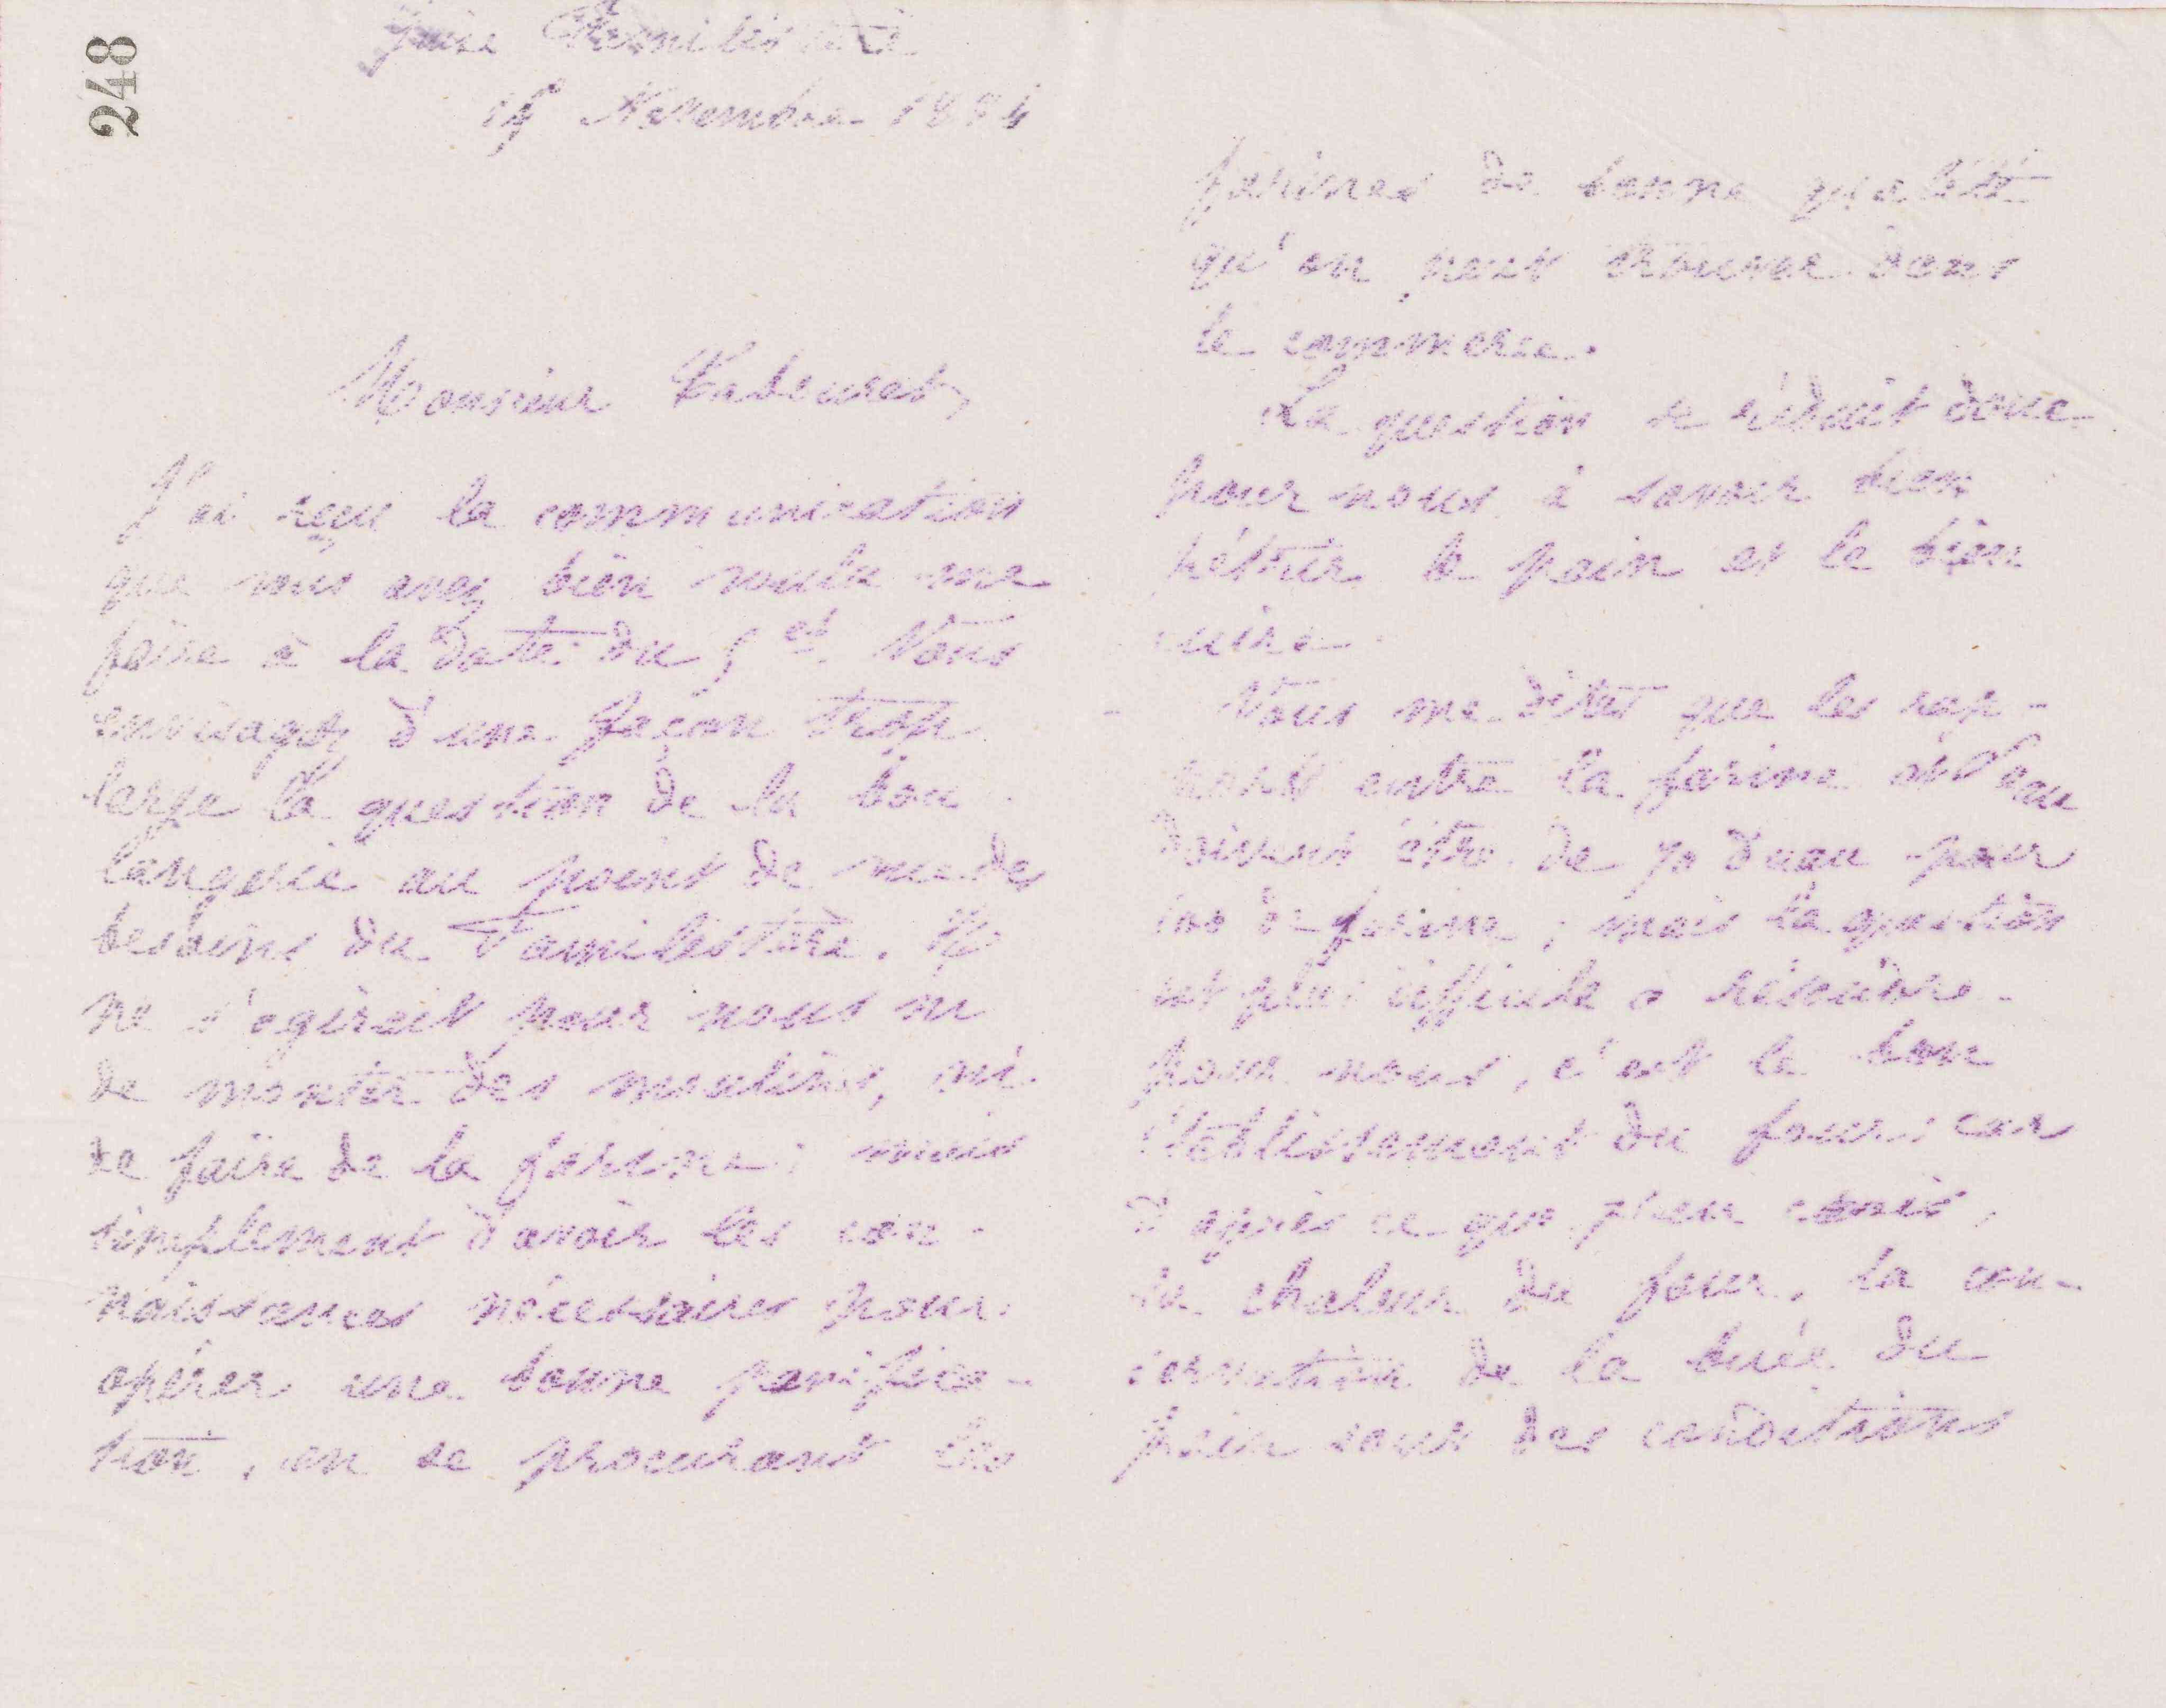 248
Guise Familistère
Novembre 18
Monsieur
J'ai reçu la communication
que vous avez bien voulu me
faire à la date du 5 ct. Vous
envisagez d'une façon trop
large la question de la bou
langerie au point de vue des
besoins du Familistère. Il
ne s'agirait pour nous ni
de monter des moulins, ni
de faire de la farine ; mais
simplement d'avoir les con-
naissances nécessaires pour
opérer une bonne panifica-
tion, en se procurant les
farines de bonne qualité
qu'on peut trouver dans
le commerce.
La question se réduit donc
pour nous à savoir bien
pétrir le pain et le bien
cuire.
Vous me dites que les rap-
ports entre la farine et l'eau
doivent être de 70 d'eau pour
100 de farine ; mais la question
est plus difficile à résoudre
pour nous, c'est le bon
établissement du four ; car
d'après ce que j'en
la chaleur du four, la con-
servation de la buée du
pain sous des conditions